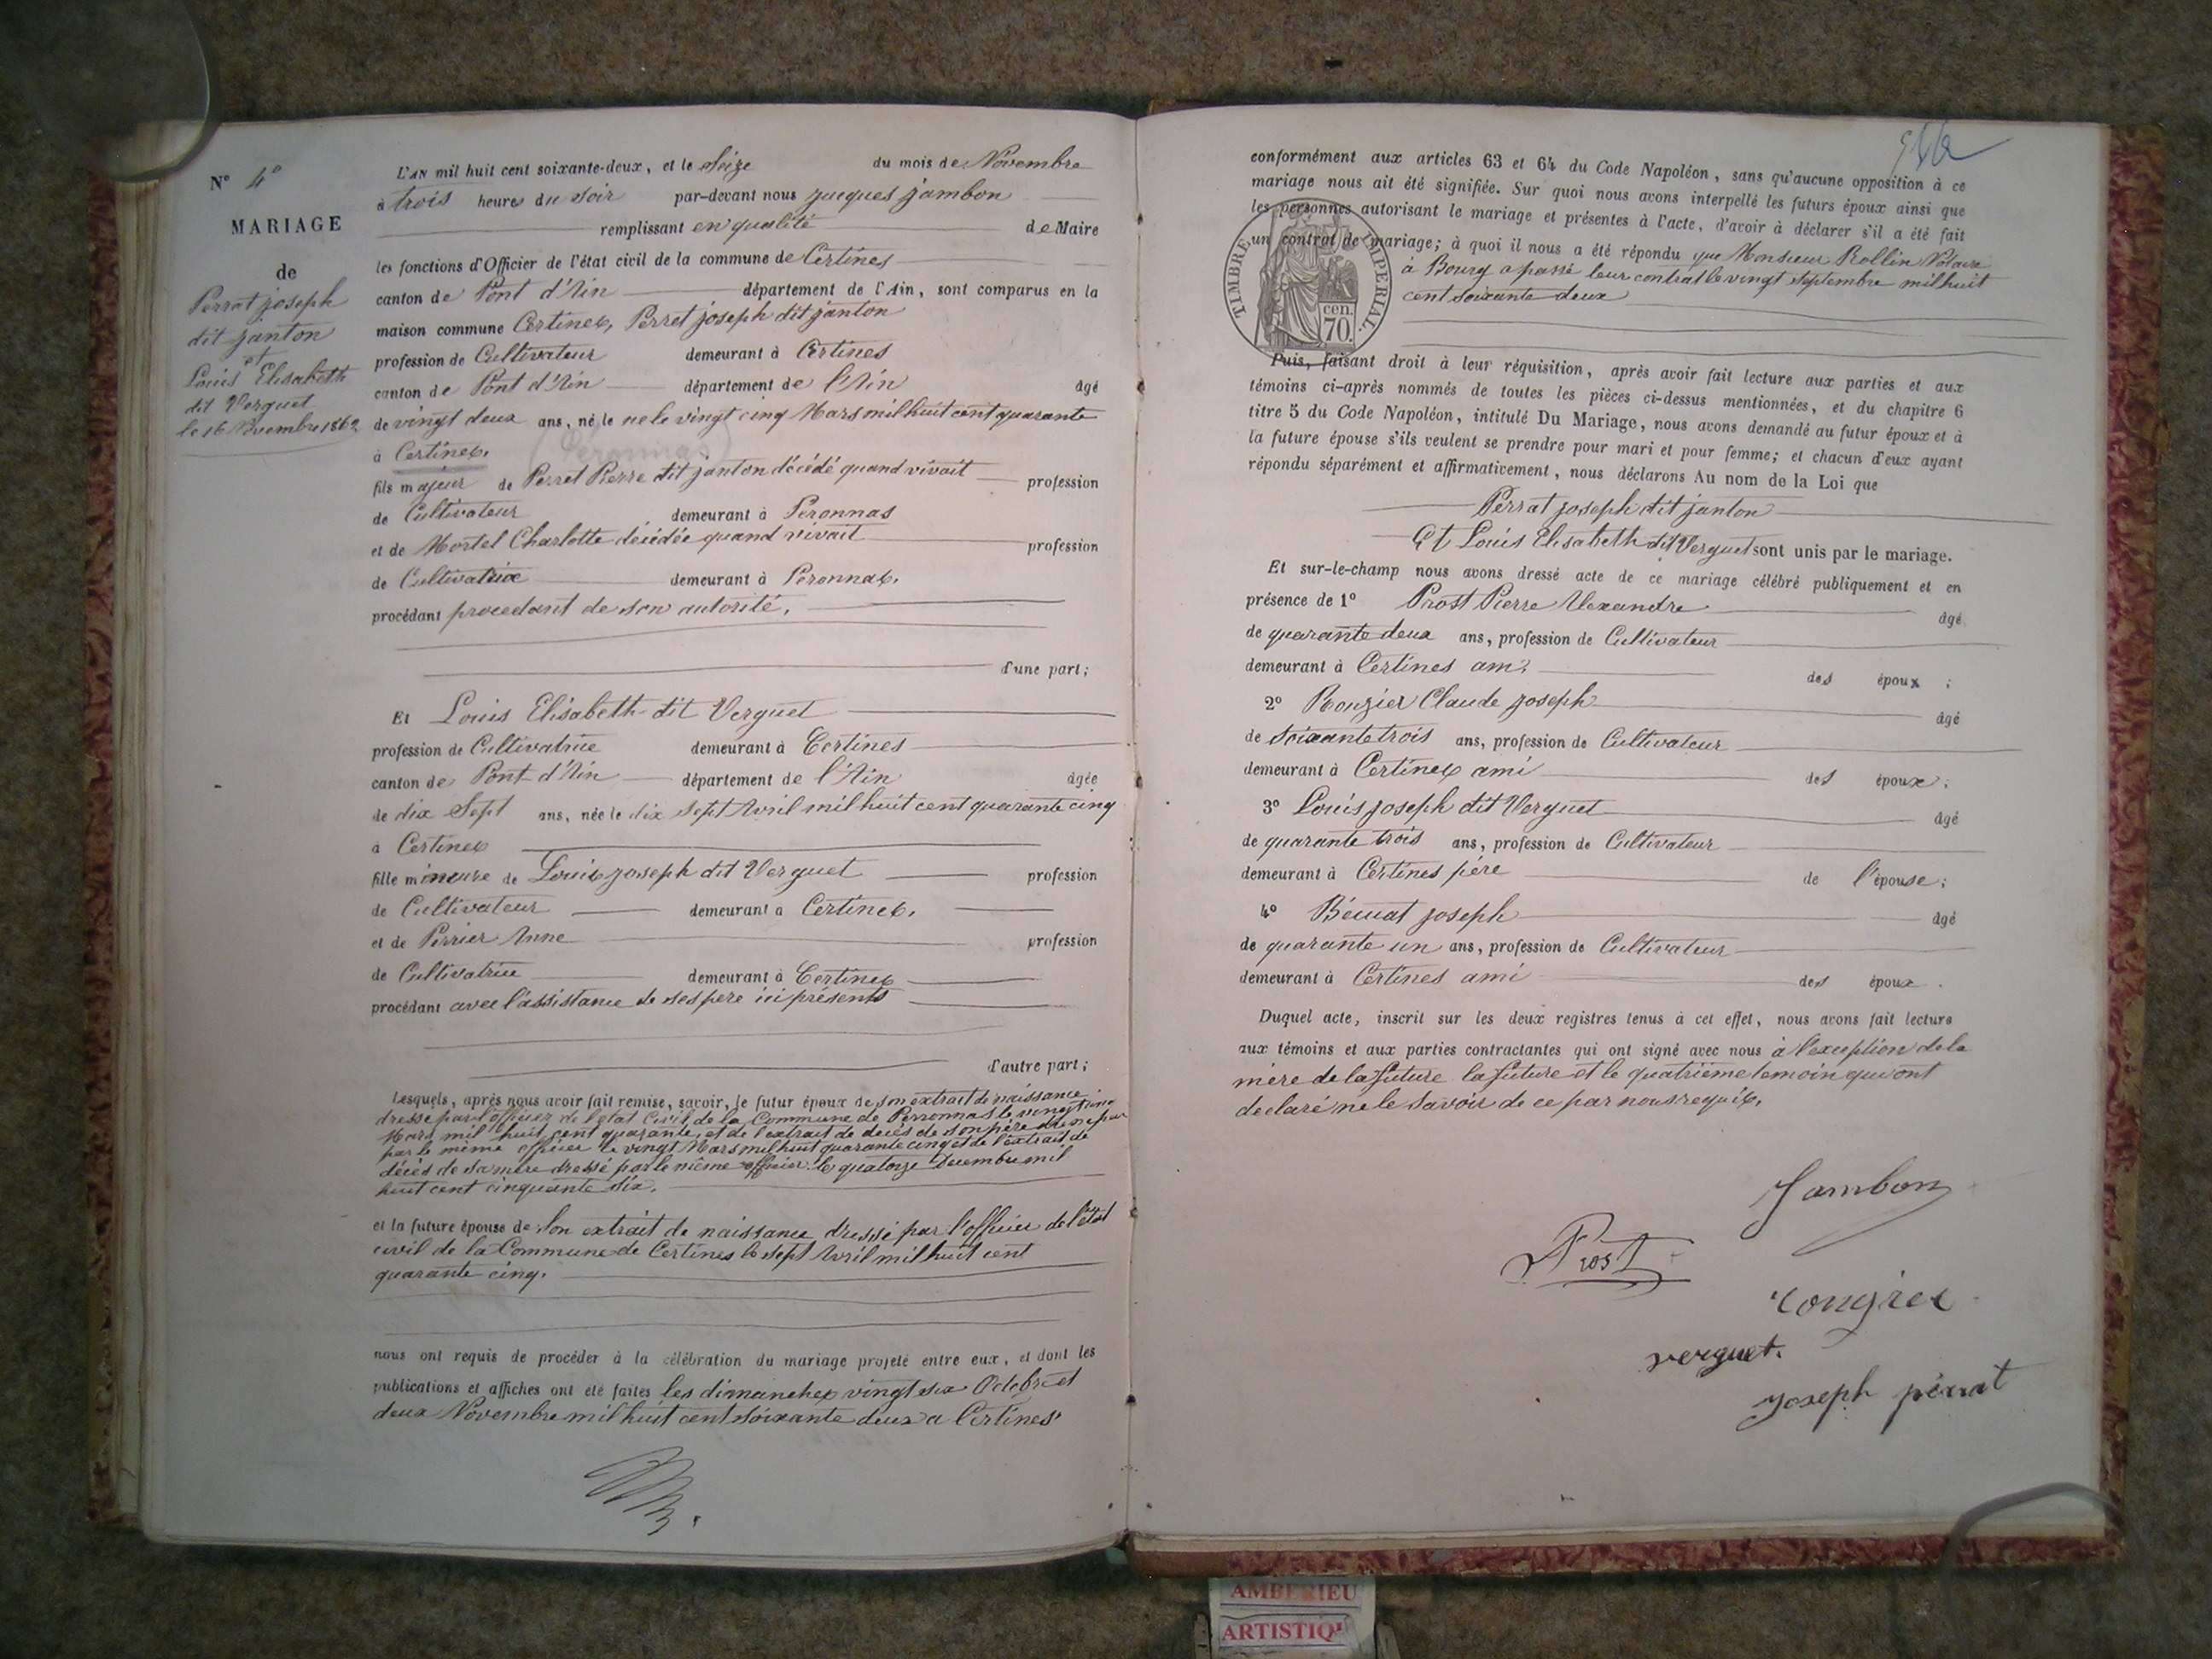 N° 4°
MARIAGE
de
Perrat joseph
dit janton
et
Louis Elisabeth
dit Verguet
le 16 Novembre 1862
L'AN mil huit cent soixante-deux, et le Seize du mois de Novembre
à trois heures du soir par-devant nous jacques jambon
remplissant en qualité de Maire
les fonctions d'Officier de l'état civil de la commune de Certines
canton de Pont d'Ain département de l'Ain, sont comparus en la
maison commune Certines, Perret joseph dit janton
profession de Cultivateur demeurant à Certines
canton de Pont d'Ain département de l'Ain âgé
de vingt deux ans, né le ne le vingt cinq Mars mil huit cent quarante
à Certines. (Péronnas)
fils majeur de Perret Pierre dit janton décédé quand vivait profession
de Cultivateur demeurant à Péronnas
et de Mortel Charlotte décédée quand vivait profession
de Cultivatrice demeurant à Peronnas.
procédant procedant de son autorité.
d'une part;
Et Louis Elisabeth dit Verguet
profession de Cultivatrice demeurant à Certines
canton de Pont d'Ain département de l'Ain âgée
de dix Sept ans, née le dix Sept Avril mil huit cent quarante cinq
à Certines
fille mineure de Louis joseph dit Verguet profession
de Cultivateur demeurant à Certines.
et de Perrier Anne profession
de Cultivatrice demeurant à Certines
procédant avec l'assistance de ses pere ici présents
d'autre part;
Lesquels, après nous avoir fait remise, savoir, le futur époux de son extrait de naissance
dressé par l'officier de l'etat Civil de la Commune de Perronnas le vingt cinq
Mars mil huit cent quarante, et de l'extrait de decés de son père dressé
par le même officier le vingt Mars mil huit quarante cinq et de l'extrait de
décès de sa mère dressé par le même officier le quatorze Decembre mil
huit cent cinquante six.
et la future épouse de Son extrait de naissance dressé par l'officier de l'état
civil de la Commune de Certines le sept Avril mil huit cent
quarante cinq.
nous ont requis de procéder à la célébration du mariage projeté entre eux, et dont les
publications et affiches ont été faites les dimanches vingt six Octobre et
deux Novembre mil huit cent soixante deux a Certines
conformément aux articles 63 et 64 du Code Napoléon, sans qu'aucune opposition à ce
mariage nous ait été signifiée. Sur quoi nous avons interpellé les futurs époux ainsi que
les personnes autorisant le mariage et présentes à l'acte, d'avoir à déclarer s'il a été fait
un contrat de mariage; à quoi il nous a été répondu que Monsieur Rollin Notaire
à Bourg a passé leur contrat le vingt Septembre mil huit
cent soixante deux
TIMBRE IMPERIAL.
cen.
70.
Puis, faisant droit à leur réquisition, après avoir fait lecture aux parties et aux
témoins ci-après nommés de toutes les pièces ci-dessus mentionnées, et du chapitre 6
titre 5 du Code Napoléon, intitulé Du Mariage, nous avons demandé au futur époux et à
la future épouse s'ils veulent se prendre pour mari et pour femme; et chacun d'eux ayant
répondu séparément et affirmativement, nous déclarons Au nom de la Loi que
Perrat joseph dit janton
Et Louis Elisabeth dit Verguet sont unis par le mariage.
Et sur-le-champ nous avons dressé acte de ce mariage célébré publiquement et en
présence de 1° Prost Pierre Alexandre âgé
de quarante deux ans, profession de Cultivateur
demeurant à Certines ami des époux ;
2° Rongier Claude joseph âgé
de soixante trois ans, profession de Cultivateur
demeurant à Certines ami des époux;
3° Louis joseph dit Verguet âgé
de quarante trois ans, profession de Cultivateur
demeurant à Certines père de l'épouse;
4° joseph âgé
de quarante un ans, profession de Cultivateur
demeurant à Certines ami des époux.
Duquel acte, inscrit sur les deux registres tenus à cet effet, nous avons fait lecture
aux témoins et aux parties contractantes qui ont signé avec nous à l'exception de la
mère de la future la future et le quatrième temoin qui ont
declaré ne le savoir de ce par nous requis.
Jambon
Prost
rongier
verguet.
joseph pérrat
AMBERIEU
ARTISTIQ